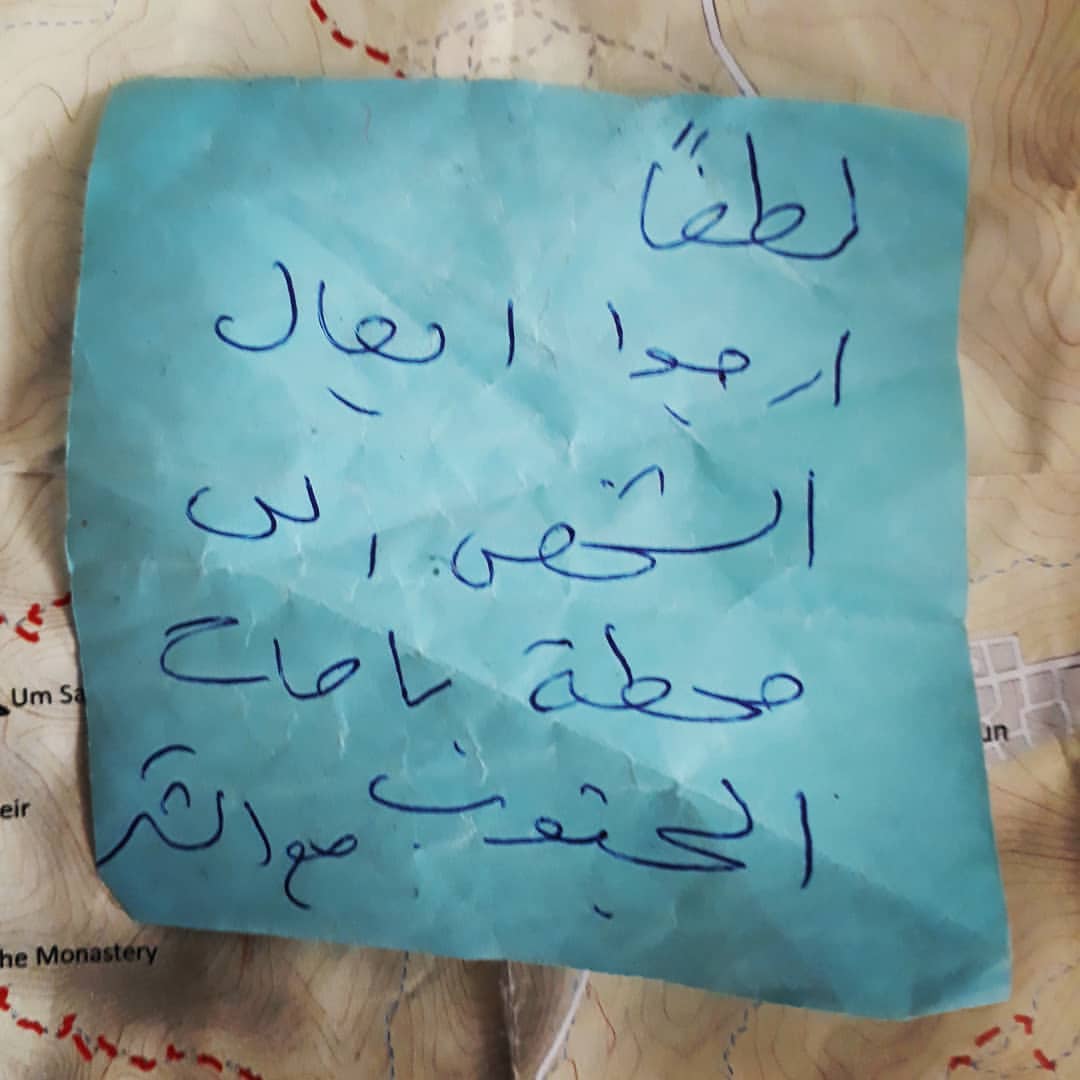 لطفاً
ارجوا ايصال
الشخص الى
محطة باصات
الجنوب مع الشكر
Um Sa
eir
he Monastery
un